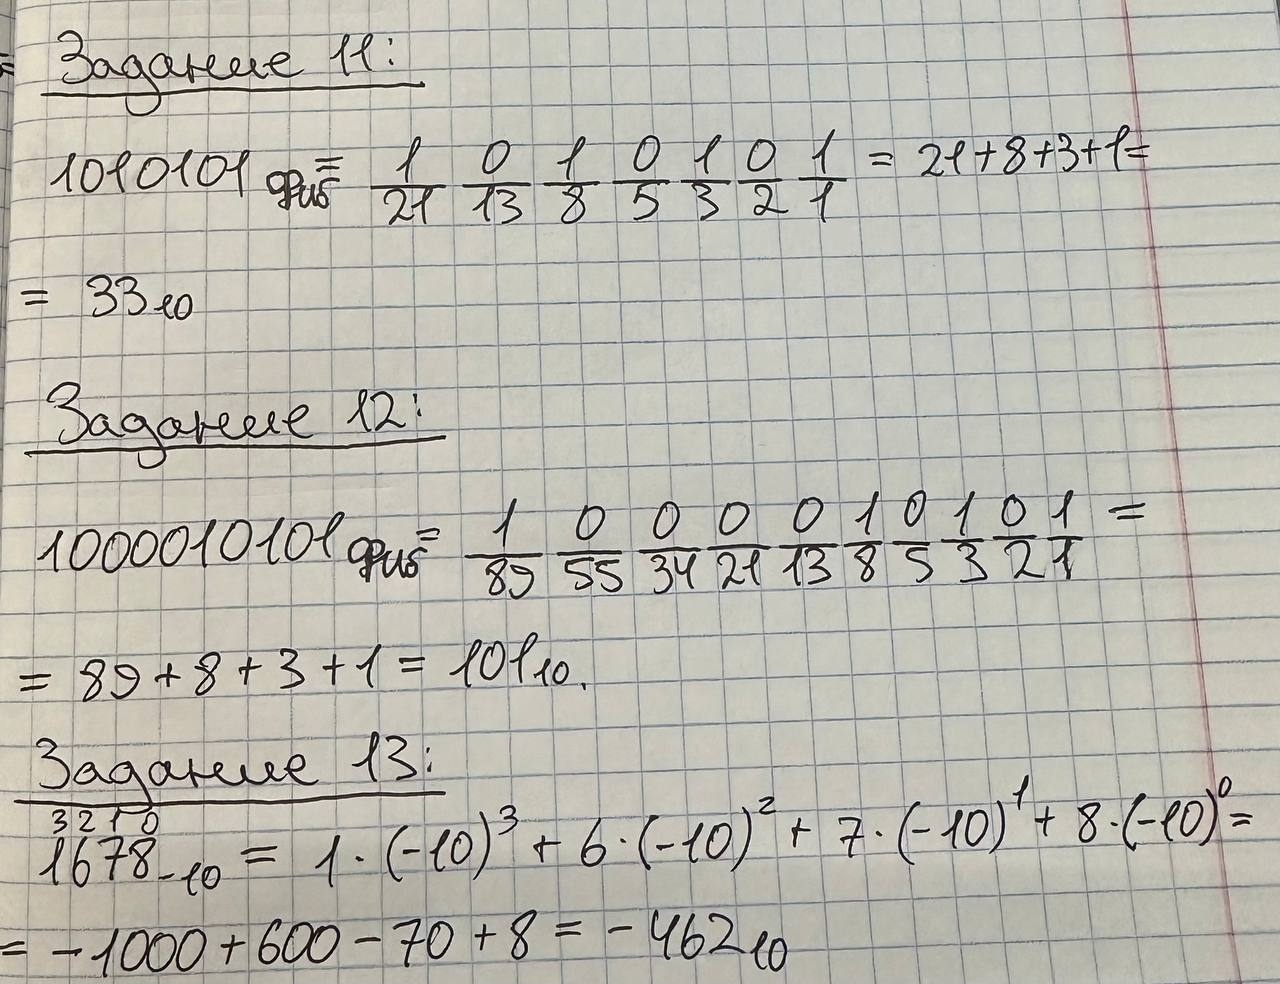 Задание 11:
1010101фиб = 1/21 0/13 1/8 0/5 1/3 0/2 1/1 = 21+8+3+1=
= 33₁₀
Задание 12:
1000010101фиб = 1/89 0/55 0/34 0/21 0/13 1/8 0/5 1/3 0/2 1/1 =
= 89+8+3+1 = 101₁₀.
Задание 13:
3 2 1 0
1678₋₁₀ = 1·(-10)³ + 6·(-10)² + 7·(-10)¹ + 8·(-10)⁰ =
= -1000+600-70+8 = -462₁₀